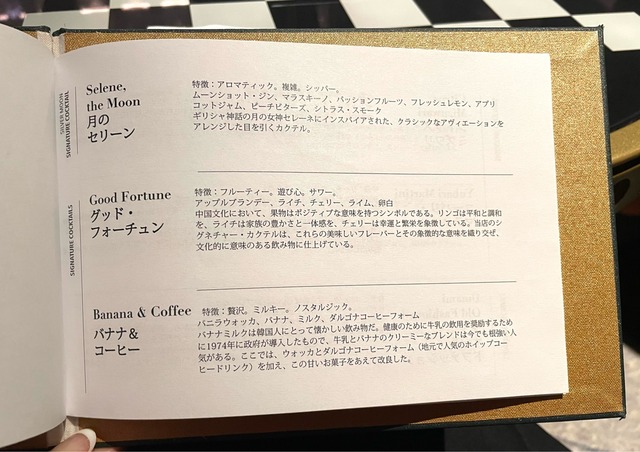 SILVER MOON
SIGNATURE COCKTAIL
Selene,
the Moon
月の
セリーン
特徴：アロマティック。複雑。シッパー。
ムーンショット・ジン、マラスキーノ、パッションフルーツ、フレッシュレモン、アプリ
コットジャム、ピーチビターズ、シトラス・スモーク
ギリシャ神話の月の女神セレーネにインスパイアされた、クラシックなアヴィエーションを
アレンジした目を引くカクテル。
SIGNATURE COCKTAILS
Good Fortune
グッド・
フォーチュン
特徴：フルーティー。遊び心。サワー。
アップルブランデー、ライチ、チェリー、ライム、卵白
中国文化において、果物はポジティブな意味を持つシンボルである。リンゴは平和と調和
を、ライチは家族の豊かさと一体感を、チェリーは幸運と繁栄を象徴している。当店のシ
グネチャー・カクテルは、これらの美味しいフレーバーとその象徴的な意味を織り交ぜ、
文化的に意味のある飲み物に仕上げている。
Banana & Coffee
バナナ＆
コーヒー
特徴：贅沢。ミルキー。ノスタルジック。
バニラウォッカ、バナナ、ミルク、ダルゴナコーヒーフォーム
バナナミルクは韓国人にとって懐かしい飲み物だ。健康のために牛乳の飲用を奨励するため
に1974年に政府が導入したもので、牛乳とバナナのクリーミーなブレンドは今でも根強い人
気がある。ここでは、ウォッカとダルゴナコーヒーフォーム（地元で人気のホイップコー
ヒードリンク）を加え、この甘いお菓子をあえて改良した。